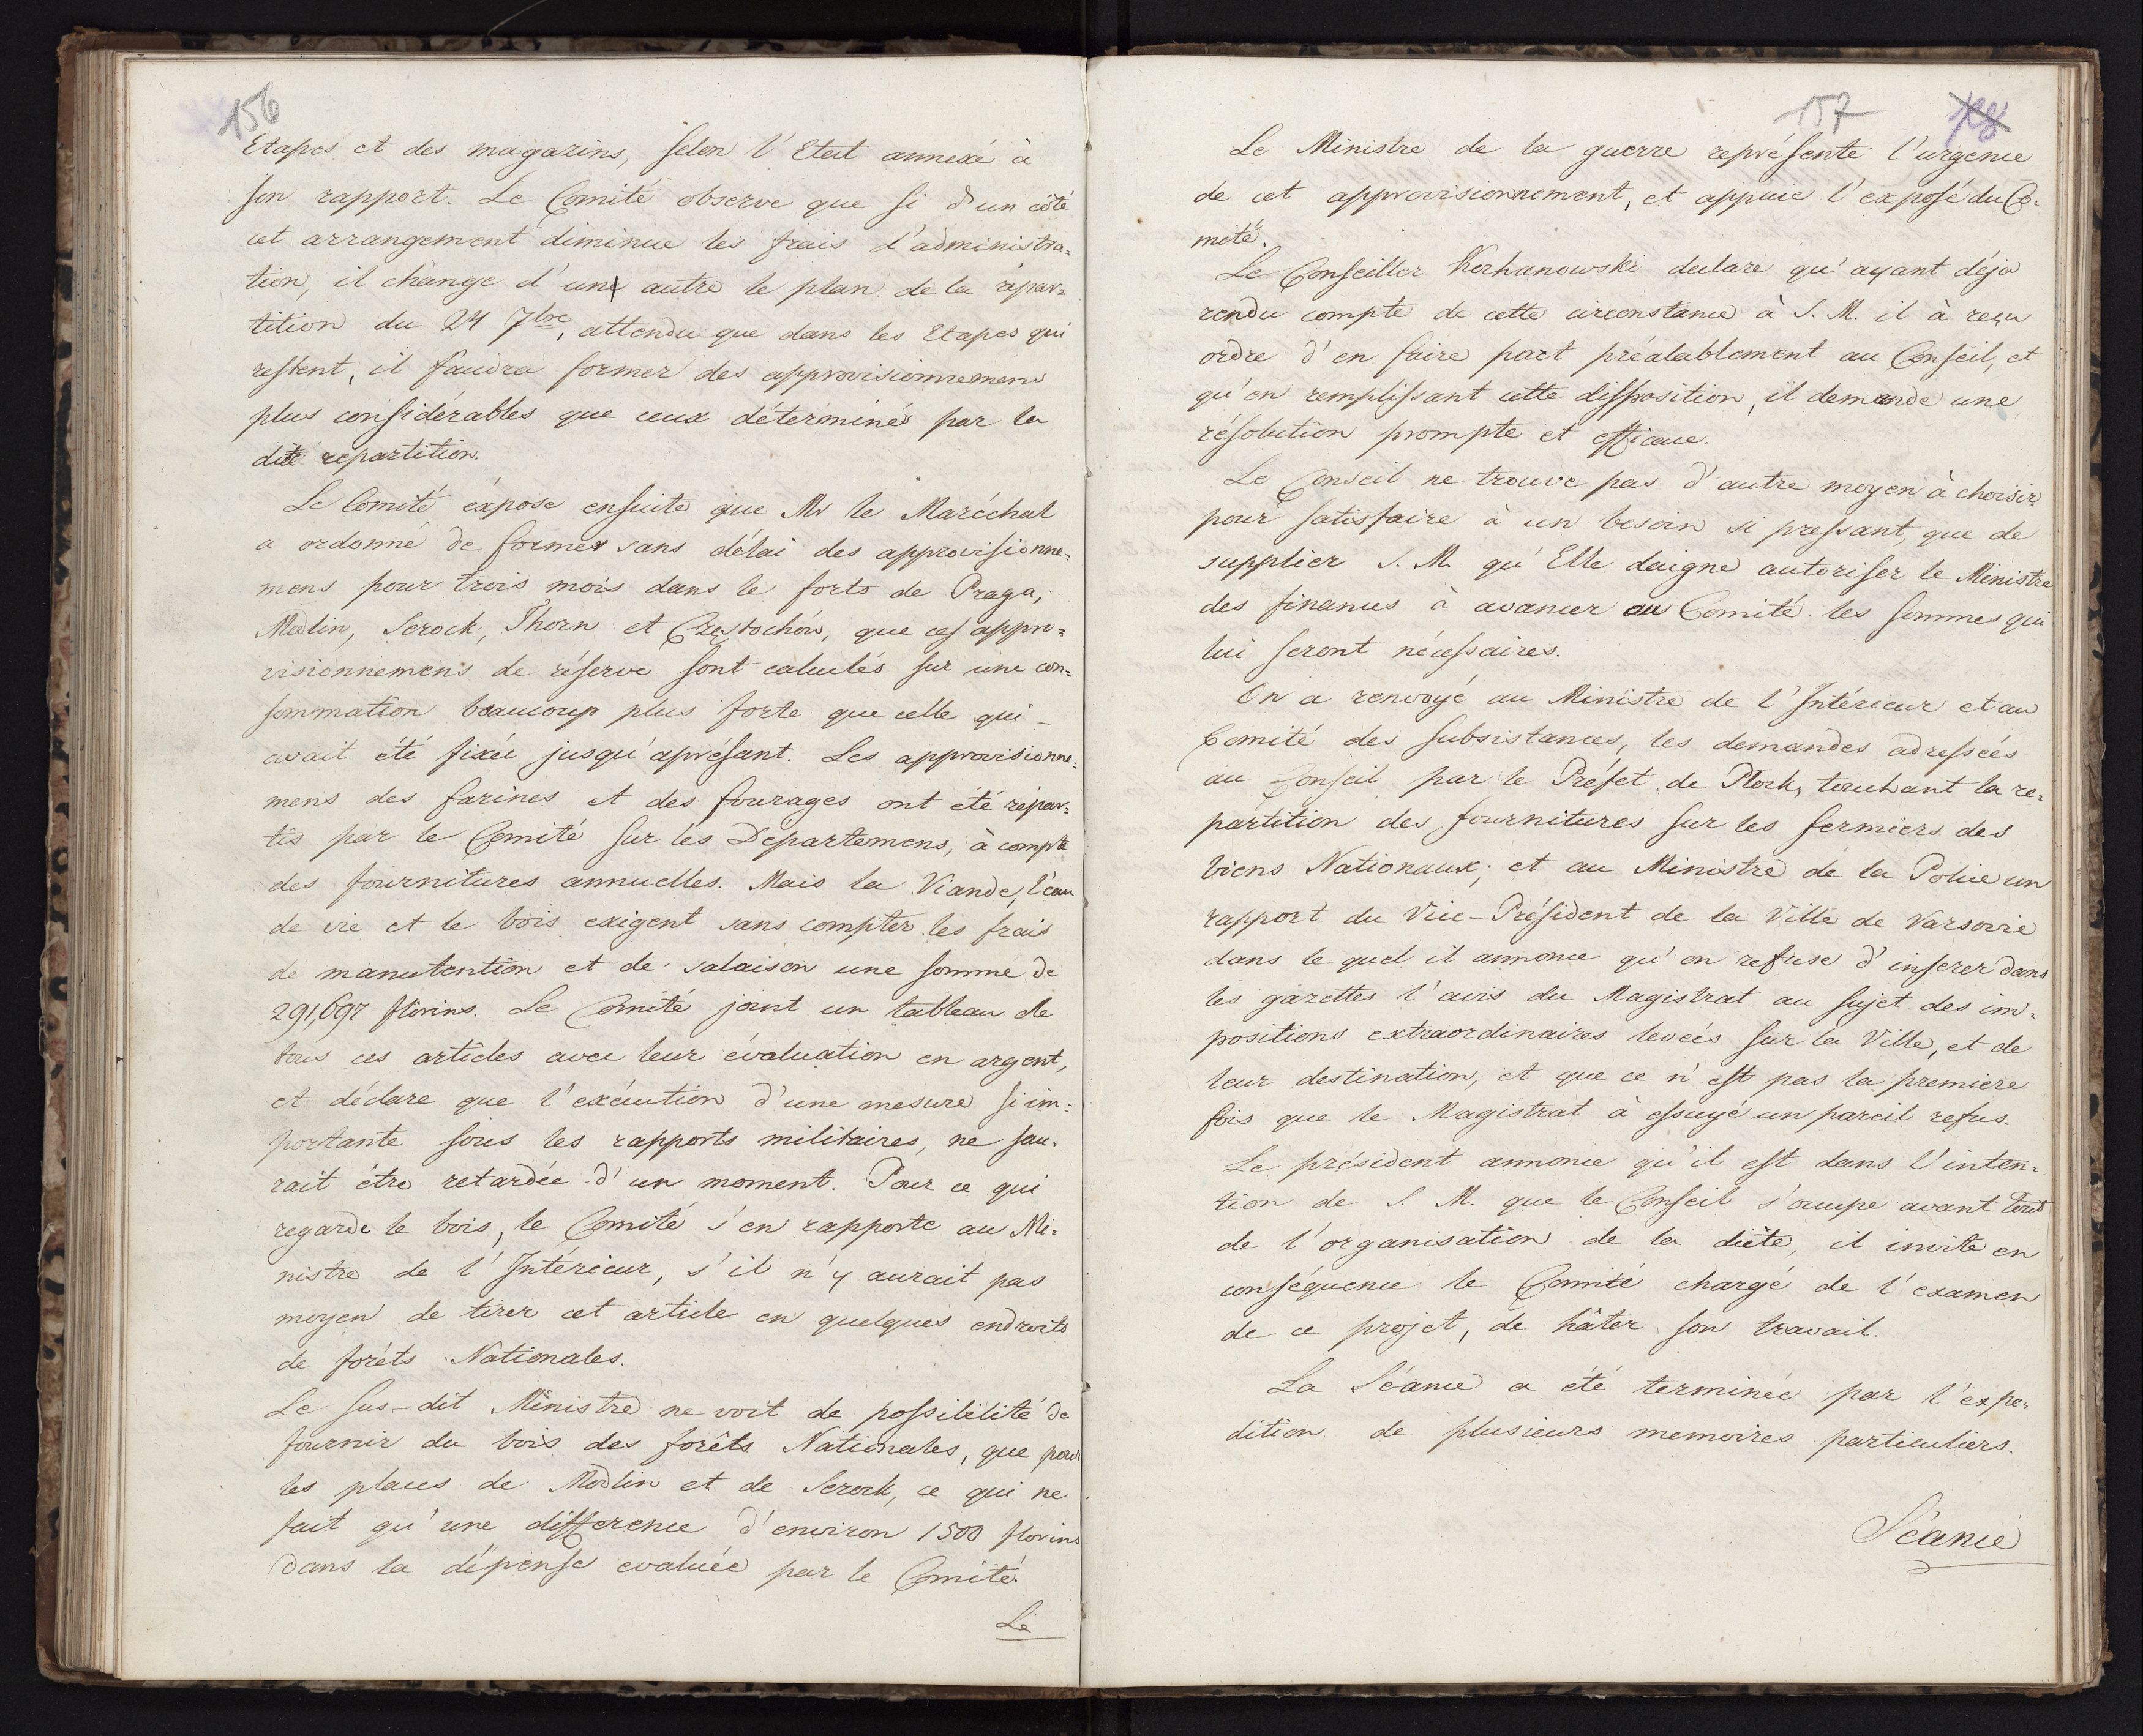 156
Etapes et des magazins, selon l'Etat annexé à
son rapport. Le Comité observe que si d'un côté
cet arrangement diminue les frais d'administra=
tion, il change d'un autre le plan de la répar=
tition du 24 7bre, attendu que dans les Etapes qui
restent, il faudra former des approvisionnemens
plus considérables que ceux déterminés par la
dite repartition.
Le Comité expose ensuite que Mr le Maréchal
a ordonné de former sans délai des approvisionne=
mens pour trois mois dans le forts de Praga,
Modlin, Serock, Thorn et Częstochów, que ces appro=
visionnemens de réserve sont calculés sur une con=
sommation beaucoup plus forte que celle qui
avait été fixée jusqu'aprésant. Les approvisionne=
mens des farines et des fourages ont été répar=
tis par le Comité sur les Departemens, à compte
des fournitures annuelles. Mais la Viande, l'eau
de vie et le bois exigent sans compter les frais
de manutention et de salaison une somme de
291,697 florins. Le Comité joint un tableau de
tous ces articles avec leur évaluation en argent,
et déclare que l'exécution d'une mesure si im=
portante sous les rapports militaires, ne sau=
rait être retardée d'un moment. Pour ce qui
regarde le bois, le Comité s'en rapporte au Mi=
nistre de l'Intérieur, s'il n'y aurait pas
moyen de tirer cet article en quelques endroits
de forêts Nationales.
Le sus-dit Ministre ne voit de possibilité de
fournir du bois des forêts Nationales, que pour
les places de Modlin et de Serock, ce qui ne
fait qu'une difference d'environ 1500 florins
dans la dépense evaluée par le Comité.
Le
157
Le Ministre de la guerre représente l'urgence
de cet approvisionnement, et appuie l'exposé du Co=
mité.
Le Conseiller Kochanowski declare qu'ayant déja
rendu compte de cette circonstance à S. M. il à reçu
ordre d'en faire part préalablement au Conseil, et
qu'en remplissant cette disposition, il demande une
résolution prompte et efficace.
Le Conseil ne trouve pas d'autre moyen à choisir
pour satisfaire à un besoin si pressant, que de
supplier S. M. qu'Elle daigne autoriser le Ministre
des finances à avancer au Comité les sommes qui
lui seront nécessaires.
On a renvoyé au Ministre de l'Intérieur et au
Comité des subsistances, les demandes adressées
au Conseil par le Préfet de Plock, touchant la re=
partition des fournitures sur les fermiers des
biens Nationaux; et au Ministre de la Police un
rapport du Vice-Président de la Ville de Varsovie
dans le quel il annonce qu'on refuse d'inserer dans
les gazettes l'avis du Magistrat au sujet des im=
positions extraordinaires levées sur la Ville, et de
leur destination, et que ce n'est pas la premiere
fois que le Magistrat à essuyé un pareil refus.
Le président annonce qu'il est dans l'inten=
tion de S. M. que le Conseil s'occupe avant tout
de l'organisation de la diète, il invite en
conséquence le Comité chargé de l'examen
de ce projet, de hâter son travail.
La Séance a été terminée par l'expe=
dition de plusieurs memoires particuliers.
Séance